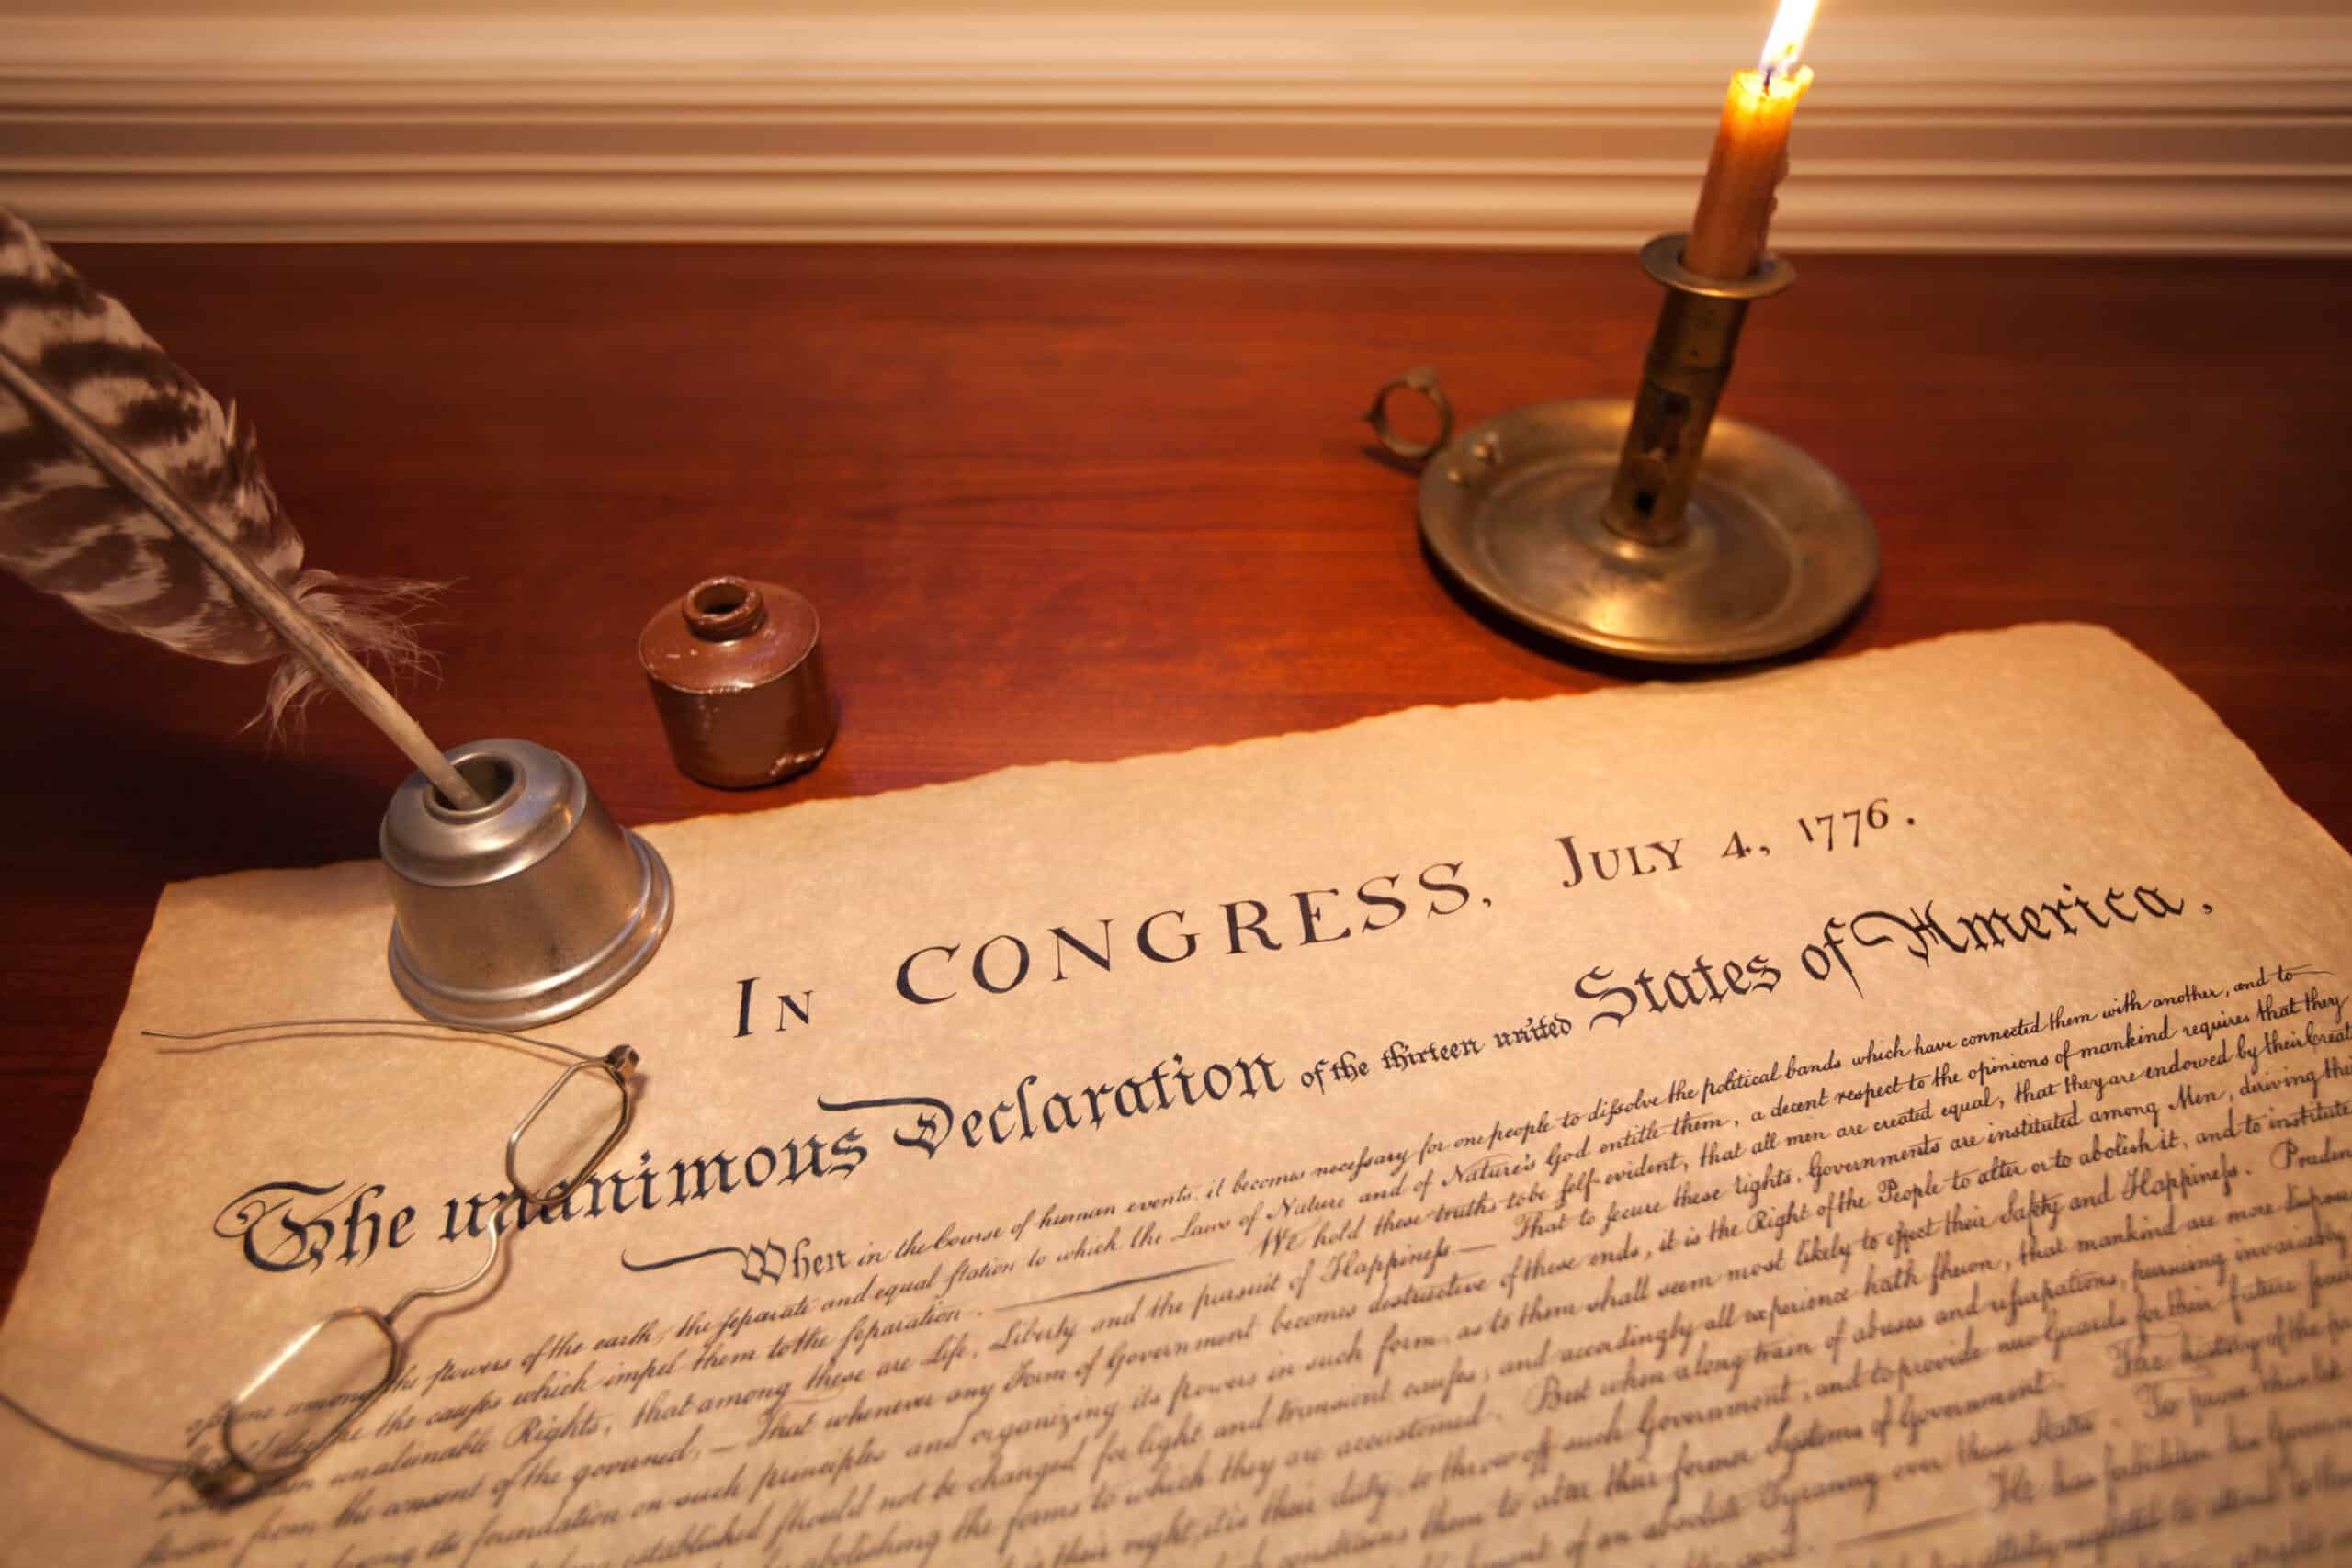 In CONGRESS, July 4, 1776.
The unanimous Declaration of the thirteen united States of America,
When in the Course of human events, it becomes neceſsary for one people to diſsolve the political bands which have connected them with another, and to
among the powers of the earth, the ſeparate and equal ſtation to which the Laws of Nature and of Nature's God entitle them, a decent respect to the opinions of mankind requires that they
ſhould declare the cauſes which impel them to the ſeparation. — We hold these truths to be ſelf-evident, that all men are created equal, that they are endowed by their Creat
unalienable Rights, that among these are Life, Liberty and the pursuit of Happineſs. — That to ſecure these rights, Governments are instituted among Men, deriving the
powers from the consent of the governed, — That whenever any Form of Government becomes destructive of these ends, it is the Right of the People to alter or to abolish it, and to institute
laying its foundation on such principles and organizing its powers in such form, as to them shall seem most likely to effect their Safety and Happineſs. Pruden
established ſhould not be changed for light and transient cauſes; and accordingly all experience hath ſhewn, that mankind are more
abolishing the forms to which they are accustomed. But when a long train of abuses and uſurpations, pursuing invariably
is their right, it is their duty, to throw off such Government, and to provide new Guards for their future
constrains them to alter their former Systems of Government. The history of the
of an absolute Tyranny over these States. To prove this, let
He has forbidden his Govern
neglected to attend to